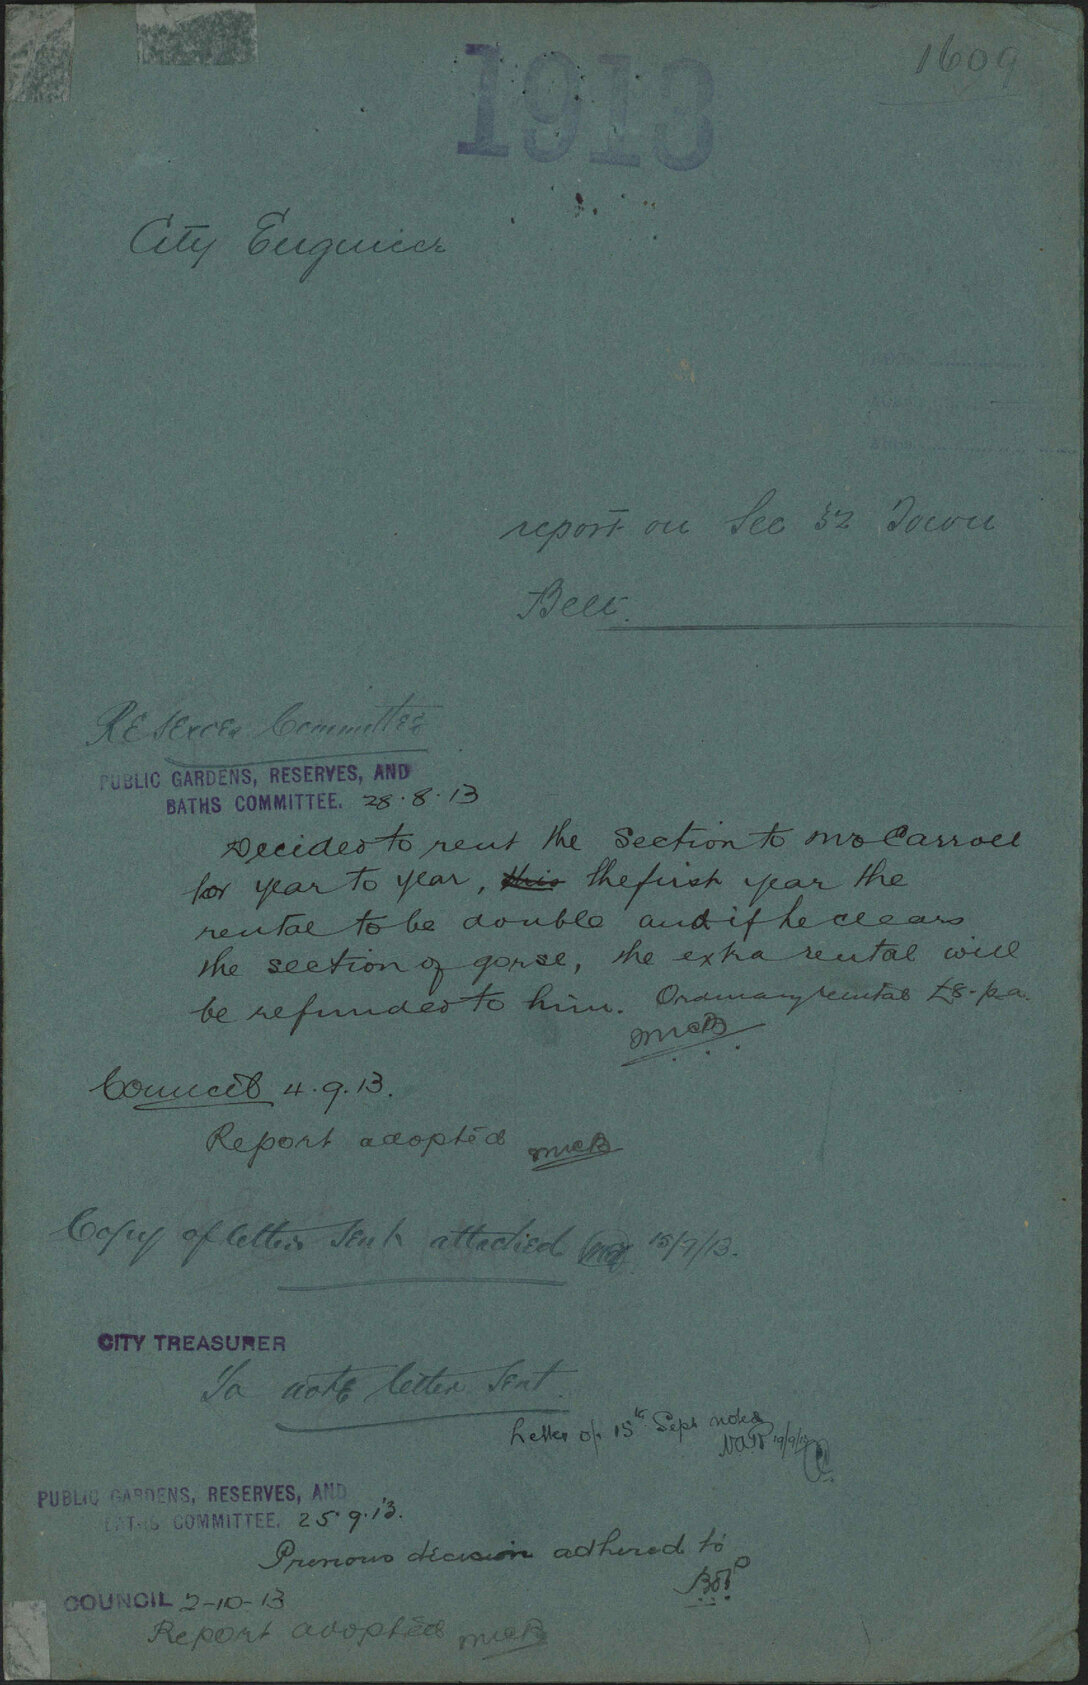 1913
1609
City Engineer
report on Sec 32 Town
Belt.
Reserves Committee
PUBLIC GARDENS, RESERVES, AND
BATHS COMMITTEE. 28.8.13
Decided to rent the section to Mr Carroll
for year to year, this the first year the
rental to be double and if he clears
the section of gorse, the extra rental will
be refunded to him. Ordinary rental £8. p.a.
Council 4.9.13.
Report adopted
Copy of letter sent attached 15/9/13.
CITY TREASURER
To note letter sent.
Letter of 15th Sept noted
19/9/13
PUBLIC GARDENS, RESERVES, AND
BATHS COMMITTEE. 25.9.13.
Previous decision adhered to
COUNCIL 2-10-13
Report adopted